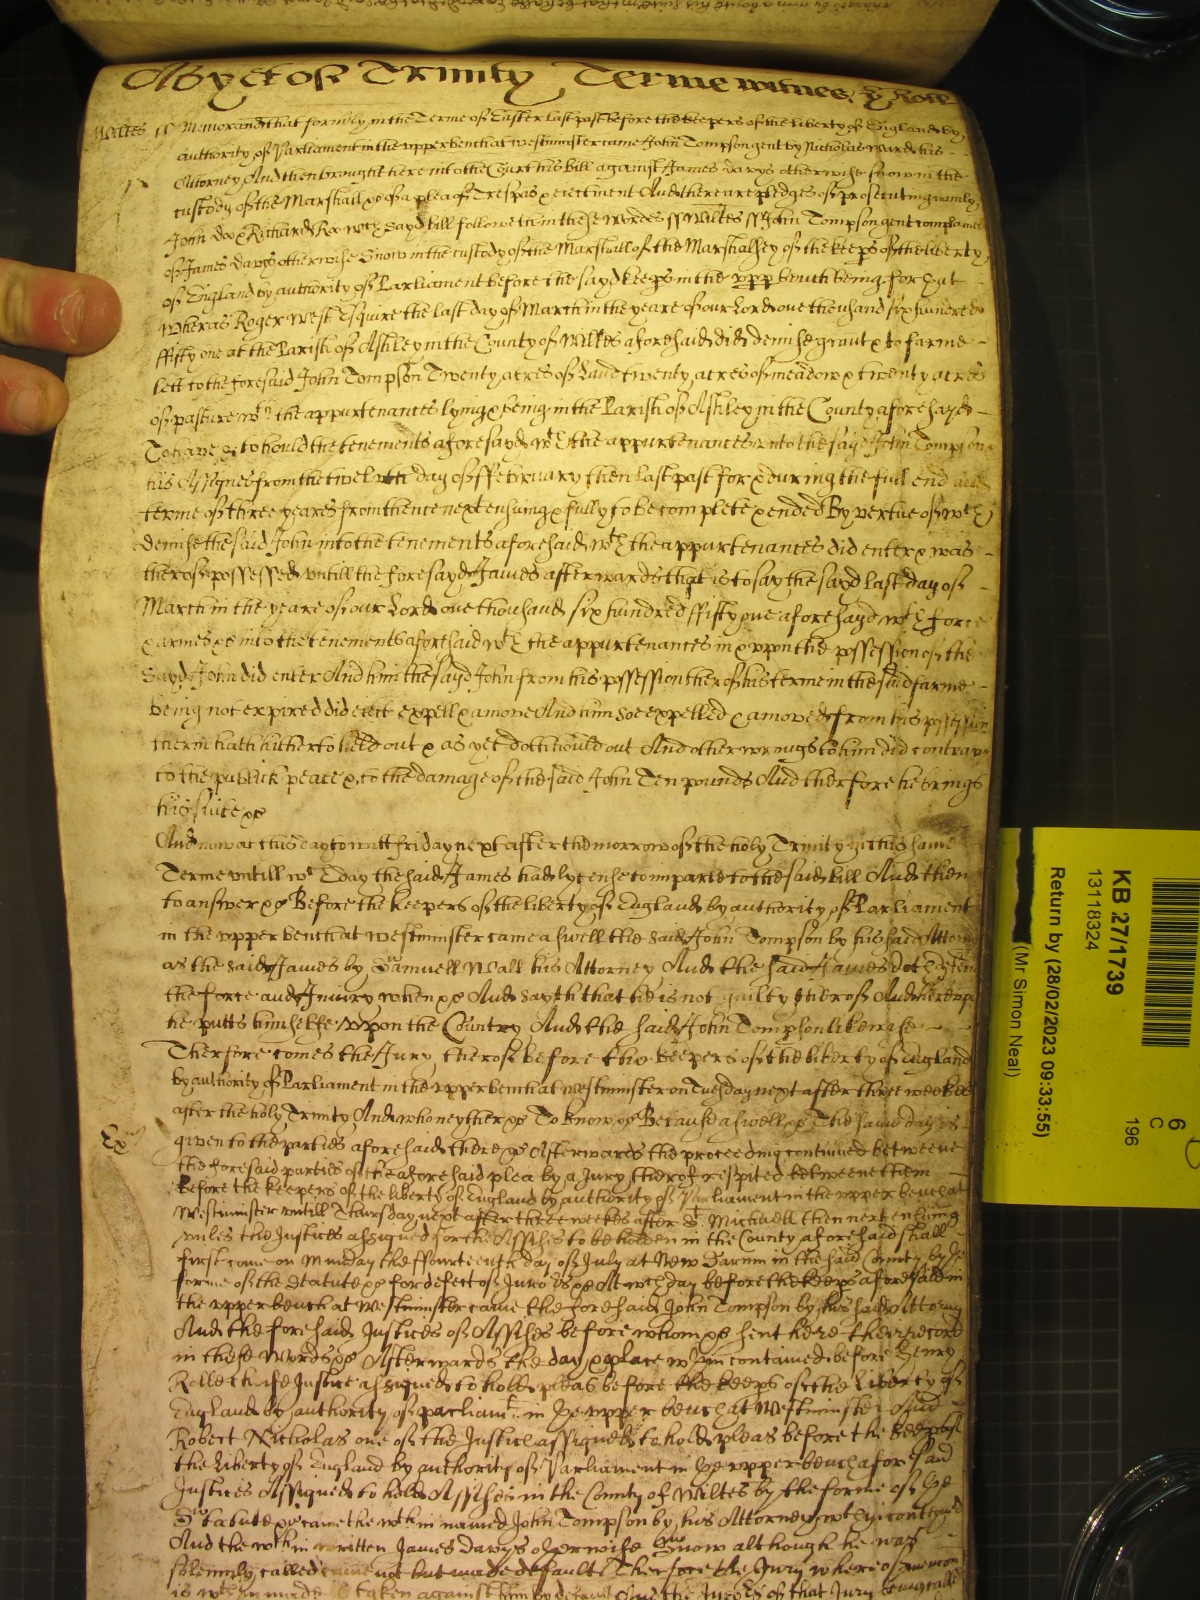 As yet of Trinity Terme witnes. ye Roll
Wiltes ss Memorand that formerly in the Terme of Easter last past before the keepers of the liberty of England by
authority of Parliament in the upper bench at Westminster came John Tompson gent by Nicholas Ward his
Attorney And then brought here into the Court his bill against James Davys otherwise Snow in the
custody of the Marshall &c of a plea of Trespas & eiectment And there are pledges of prosecuting namely
John Doo & Richard Roo wch sayd bill followeth in these words ss Wiltes ss John Tompson gent complaines
of James Davys otherwise Snow in the custody of the Marshall of the Marshalsey of the keeps of the liberty
of England by authority of Parliament before the sayd keeps in the upper bench being. for that
Wheras Roger West Esquire the last day of March in the yeare of our Lord one thousand six hundred
ffifty one at the Parish of Astley in the County of Wiltes aforesaid did demise graunt & to farme
lett to the foresaid John Tompson Twenty acres of Land twenty acres of meadow & twenty acres
of pasture wth the appurtenances lying & being in the Parish of Astley in the County aforesayd
To have & to hould the tenements aforesayd wth the appurtenances unto the sayd John Tompson
his Assignes from the twelveth day of ffebruary then last past for & during the full end and
terme of three yeares from thence next ensuing & fully to be complete & ended By vertue of wch
demise the said John into the tenements aforesaid wth the appurtenances did enter & was
therof possessed untill the foresayd James afterwards that is to say the sayd last day of
March in the yeare of our Lord one thousand six hundred ffifty one aforesayd wth force
& armes &c into the tenements aforesaid wth the appurtenances in & uppon the possession of the
Sayd John did enter And him the sayd John from his possession therof his terme in the said farme
being not expired did eiect expell & amove And him soe expelled & amoved from his possession
therin hath hitherto held out & as yet doth hould out And other wrongs to him did contrary
to the publick peace &c to the damage of the said John Ten pounds And therfore he brings
his suite &c
And now at this day to witt friday next after the morrow of the holy Trinity in this same
Terme untill wch day the said James had lycense to imparle to the said bill And then
to answer &c Before the keepers of the liberty of England by authority of Parliament
in the upper bench at Westminster came aswell the said John Tompson by his said Attorny
as the said James by Samuell Wall his Attorney And the said James doth defend
the force and Iniury when &c And sayth that he is not guilty therof And therupon
he putts himselfe uppon the Country And the said John Tompson likewise
Therfore comes the Jury therof before the keepers of the liberty of England
by authority of Parliament in the upper bench at Westminster on Tuesday next after three weekes
after the holy Trinity And who neyther &c To know &c Because aswell &c The same day is
Ex
given to the parties aforesaid there &c Afterwards the proceeding continued betweene
the foresaid parties of the aforesaid plea by a Jury therof respited betweene them
before the keepers of the liberty of England by authority of Parliament in the upper bench at
Westminster untill Thursday next after three weekes after St Michaell then next ensuing
unles the Justices assigned for the Assises to be holden in the County aforesaid shall
first come on Munday the ffourteenth day of July at New Sarum in the said County by ye
forme of the Statute &c for defect of Juro rs &c At wch day before the keeps aforesaid in
the upper bench at Westminster came the foresaid John Tompson by his said Attorny
And the foresaid Justices of Assises before whom &c sent here their record
in these words &c Afterwards the day & place wthin contained before Henry
Rolle cheife Justice assigned to hold pleas before the keeps of the Liberty of
England by authority of parliamt in ye upper bench at Westminster and
Robert Nicholas one of the Justices assigned to hold pleas before the keeps of
the Liberty of England by authority of Parliament in ye upper bench aforesaid
Justices Assigned to hold Assises in the County of Wiltes by the forme of ye
Statute &c came the wthin named John Tompson by his Attorney wthin contayned
And the wthin written James Davys otherwise Snow although he was
solemnly called came not but made default Therfore the Jury wherof mencon
is wthin made taken against him by default And the Jurors of that Jury being called
KB 27/1739
13118324
Return by (28/02/2023 09:33:55)
(Mr Simon Neal)
6
C
196